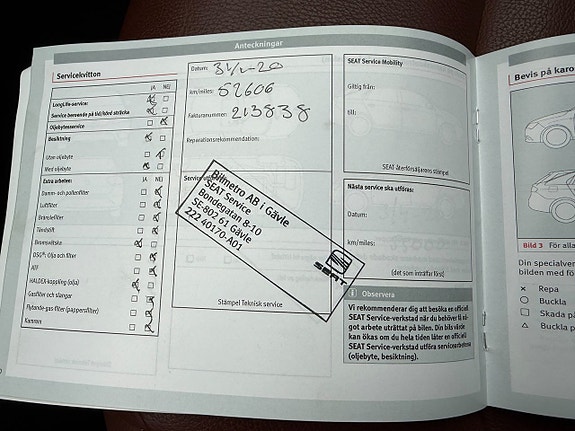 Anteckningar
Servicekvitton
JA NEJ
LongLife-service:
Service beroende på tid/körd sträcka
Oljebytesservice
Besiktning
Utan oljebyte
Med oljebyte
Extra arbeten: JA NEJ
Damm- och pollenfilter
Luftfilter
Bränslefilter
Tändstift
Bromsvätska
DSG®: Olja och filter
ATF
HALDEX-koppling (olja)
Gasfilter och slangar
Flytande-gas-filter (pappersfilter)
Kamrem
Datum:
km/miles: 52606
Fakturanummer: 213838
Reparationsrekommendation:
Bilmetro AB i Gävle
SEAT Service
SE-802 61 Gävle
222 40170-A01
SEAT
Stämpel Teknisk service
SEAT Service Mobility
Giltig från:
till:
SEAT återförsäljarens stämpel
Nästa service ska utföras:
Datum:
km/miles:
(det som inträffar först)
Observera
Vi rekommenderar dig att besöka en officiell
SEAT Service-verkstad när du behöver få nå-
got arbete uträttat på bilen. Din bils värde
kan ökas om du hela tiden låter en officiell
SEAT Service-verkstad utföra servicearbetena
(oljebyte, besiktning).
Bevis på karo
Bild 3 För alla
Din specialver
bilden med fö
× Repa
Buckla
Skada på
Buckla p